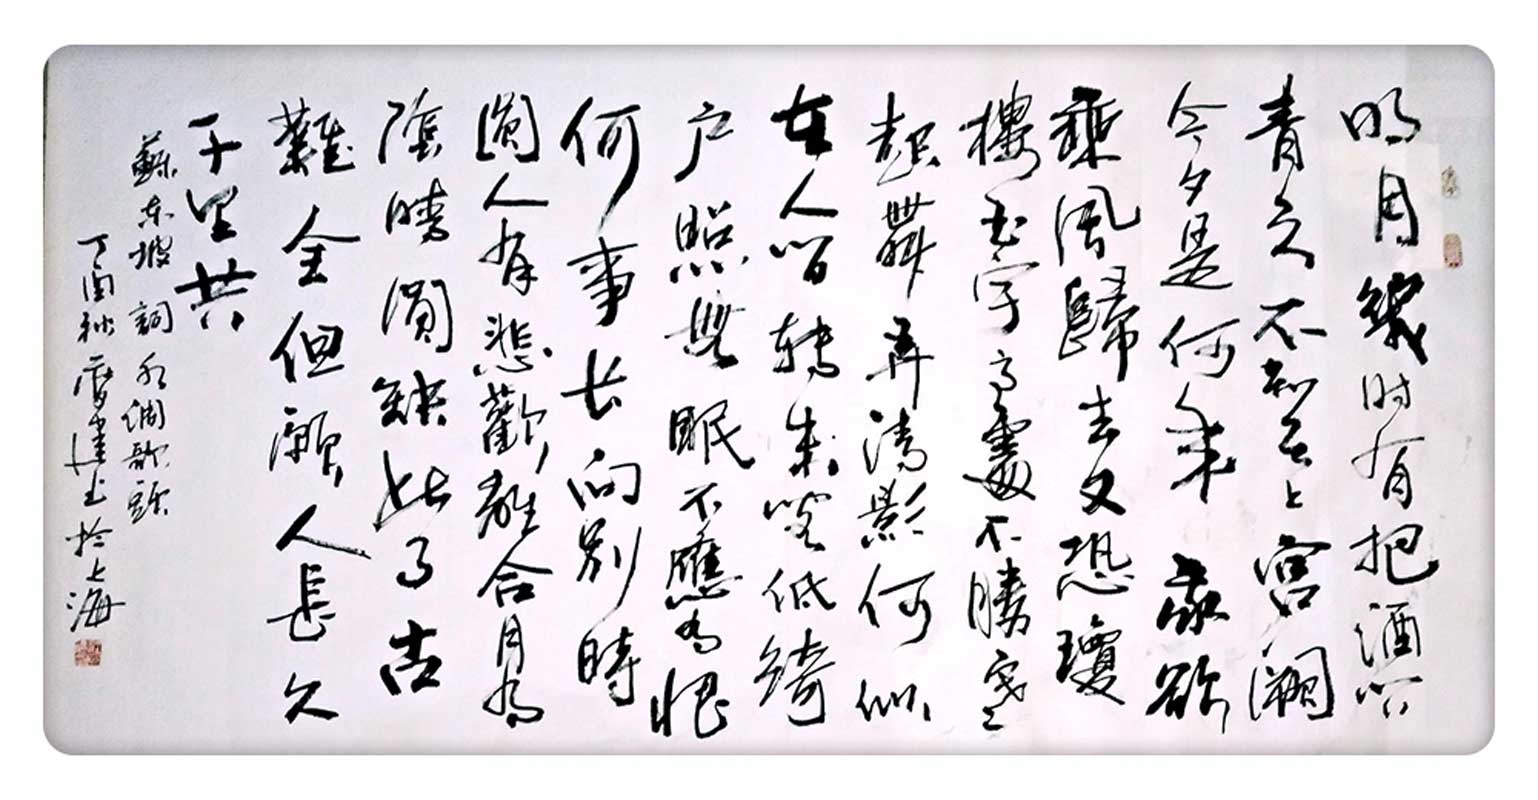 明月幾时有把酒问
青天不知天上宫阙
今夕是何年我欲
乘風歸去又恐瓊
樓玉宇高處不勝寒
起舞弄清影何似
在人间转朱阁低绮
户照無眠不應有恨
何事长向别時
圓人有悲歡離合月有
陰晴圓缺此事古
難全但願人長久
千里共
蘇东坡詞水调歌头
丁酉秋书於上海